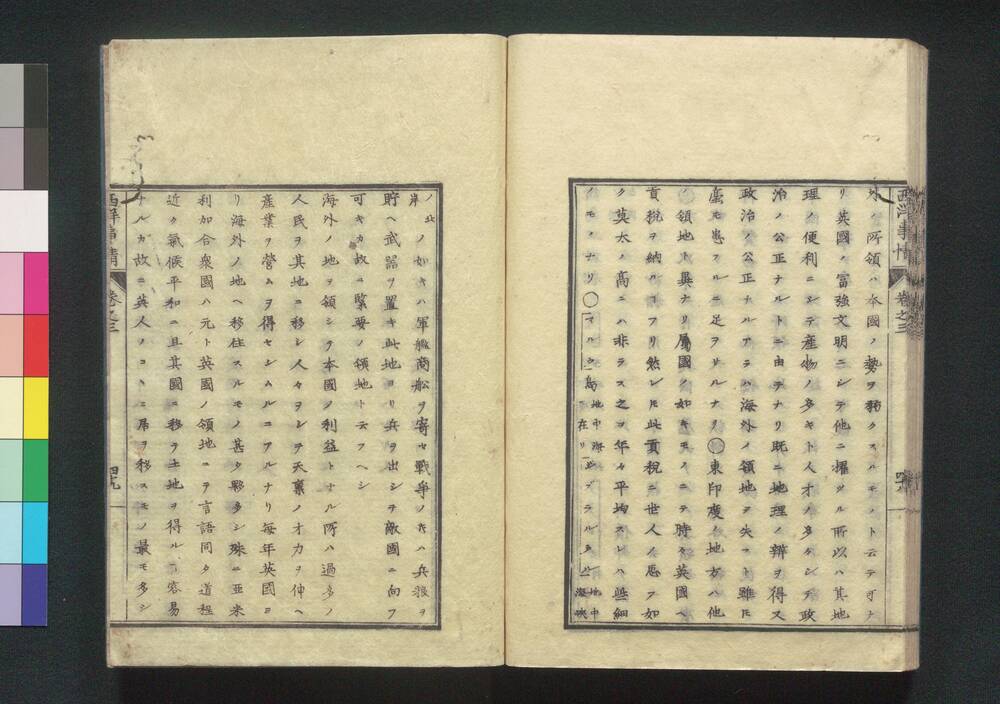 外ノ所領ハ本國ノ勢ヲ弱クスルモノト云テ可ナ
リ英國ノ富強文明ニシテ他ニ擢ツル所以ハ其地
理ノ便利ニシテ産物ノ多キト人才ノ多クシテ政
治ノ公正ナルトニ由テナリ既ニ地理ノ辨ヲ得又
政治ノ公正ナルアラハ海外ノ領地ヲ失フト雖𪜈
毫モ患フルニ足ラサルナリ○東印度ノ地方ハ他
ノ領地ト異ナリ屬國ノ如キモノニテ時々英國ヘ
貢税ヲ納ルヿアリ然レ𪜈此貢税ニ世人ノ思フ如
ク莫大ノ高ニハ非ラス之ヲ年々平均スレハ些細
ノモノナリ○マルタ島地中海ニ在リジブラルタル地中海峽
ノ北岸ノ如キハ軍艦商舩ヲ寄セ戰爭ノキハ兵粮ヲ
貯ヘ武器ヲ置キ此地ヨリ兵ヲ出シテ敵國ニ向フ
可キカ故ニ緊要ノ領地ト云フヘシ
海外ノ地ヲ領シテ本國ノ利益トナル所ハ過多ノ
人民ヲ其地ニ移シ人々ヲシテ天稟ノ才力ヲ伸ヘ
産業ヲ營ムヲ得セシムルニアルナリ每年英國ヨ
リ海外ノ地ヘ移住スルモノ甚タ夥多シ殊ニ亞米
利加合衆國ハ元ト英國ノ領地ニテ言語同ク道程
近ク氣候平和ニ且其國ニ移テ土地ヲ得ルヿ容易
ナルカ故ニ英人ノコヽニ居ヲ移スモノ最モ多シ
西洋事情
卷之三
西洋事情
卷之三
四十九